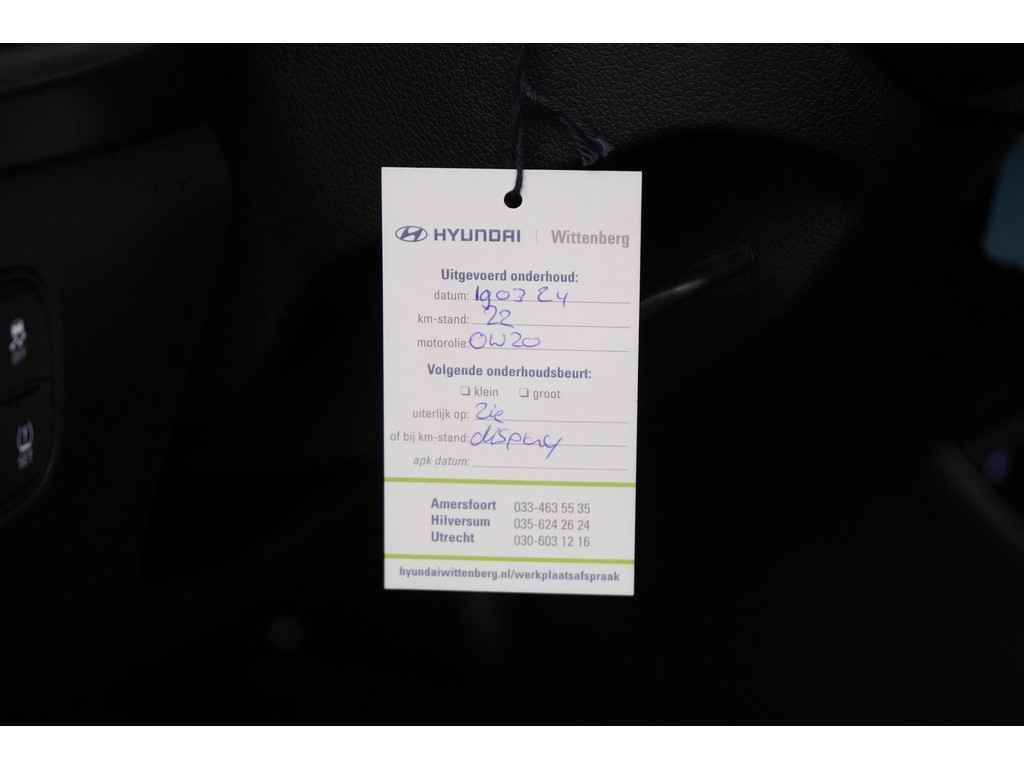 HYUNDAI | Wittenberg
Uitgevoerd onderhoud:
datum: 190324
km-stand: 22
motorolie: 0W20
Volgende onderhoudsbeurt:
❏ klein ❏ groot
uiterlijk op: Zie
of bij km-stand: display
apk datum:
Amersfoort 033-463 55 35
Hilversum 035-624 26 24
Utrecht 030-603 12 16
hyundaiwittenberg.nl/werkplaatsafspraak